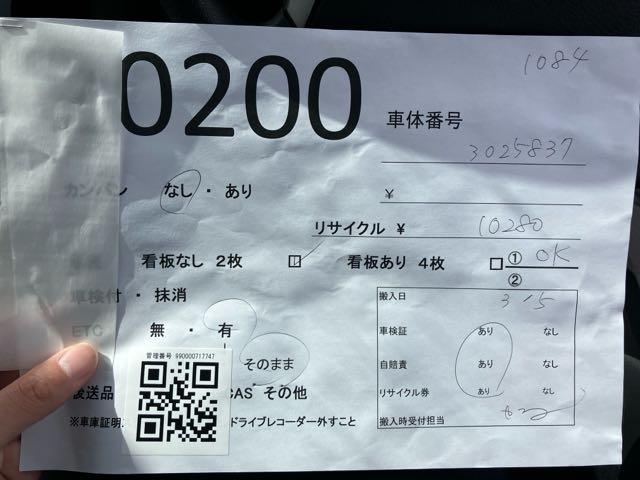 1084
0200
車体番号
3025837
カンバン なし ・ あり
¥
リサイクル ¥ 10280
看板なし 2枚 □ 看板あり 4枚 □ ① OK
②
車検付 ・ 抹消
ETC 無 ・ 有
そのまま
搬入日 3/15
車検証 あり なし
自賠責 あり なし
リサイクル券 あり なし
搬入時受付担当
管理番号 990000717747
後送品 CAS その他
※車庫証明 ドライブレコーダー外すこと